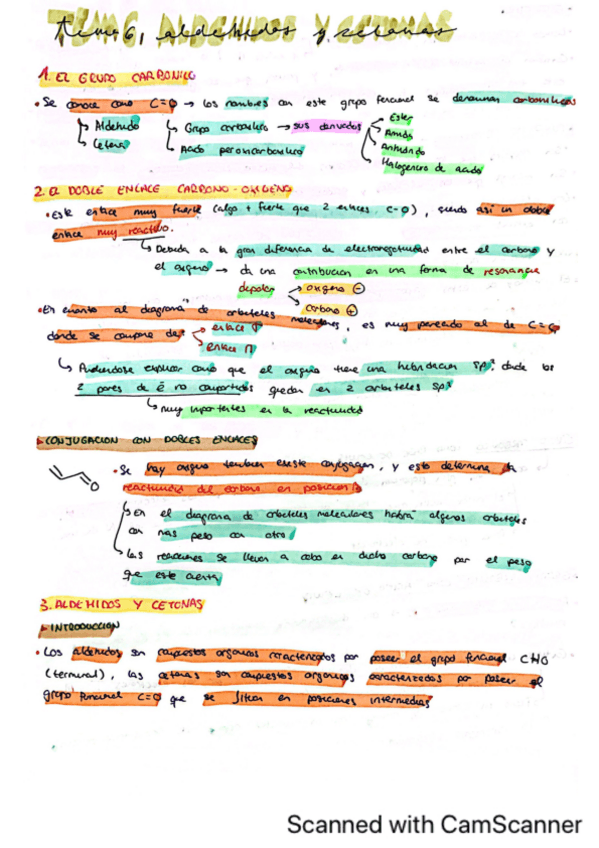 Tema 6, aldehidos y cetonas
1. EL GRUPO CARBONILO
• Se conoce como C=O → los nombres con este grupo funcional se denominan carbonílicos
↳ Aldehido ↳ Grupo carboxilico → sus derivados → Ester
↳ Cetona ↳ Acido peroxicarboxilico Amida
Anhidrido
Halogenuro de acido
2. EL DOBLE ENLACE CARBONO-OXIGENO
• Este enlace muy fuerte (algo + fuerte que 2 enlaces C-O), siendo asi un doble
enlace muy reactivo.
↳ Debida a la gran diferencia de electronegatividad entre el carbono y
el oxigeno → da una contribucion en una forma de resonancia
depolar → oxigeno ⊖
→ carbono ⊕
• En cuanto al diagrama de orbitales moleculares, es muy parecido al de C=C
donde se compone de: → enlace σ
→ enlace π
↳ Pudiendose explicar como que el oxigeno tiene una hibridacion sp², donde los
2 pares de ē no compartidos quedan en 2 orbitales sp²
↳ muy importantes en la reactividad
CONJUGACION CON DOBLES ENLACES
• Se hay oxigeno tambien existe conjugacion, y esto determina la
O reactividad del carbono en posicion
↳ En el diagrama de orbitales moleculares habrá algunos orbitales
con mas peso con otro
↳ Las reacciones se llevan a cabo en dicho carbono por el peso
que este cuenta
3. ALDEHIDOS Y CETONAS
INTRODUCCION
• Los aldehidos son compuestos organicos caracterizados por poseer el grupo funcional CHO
(terminal), las cetonas son compuestos organicos caracterizados por poseer el
grupo funcional C=O que se situa en posiciones intermedias
Scanned with CamScanner